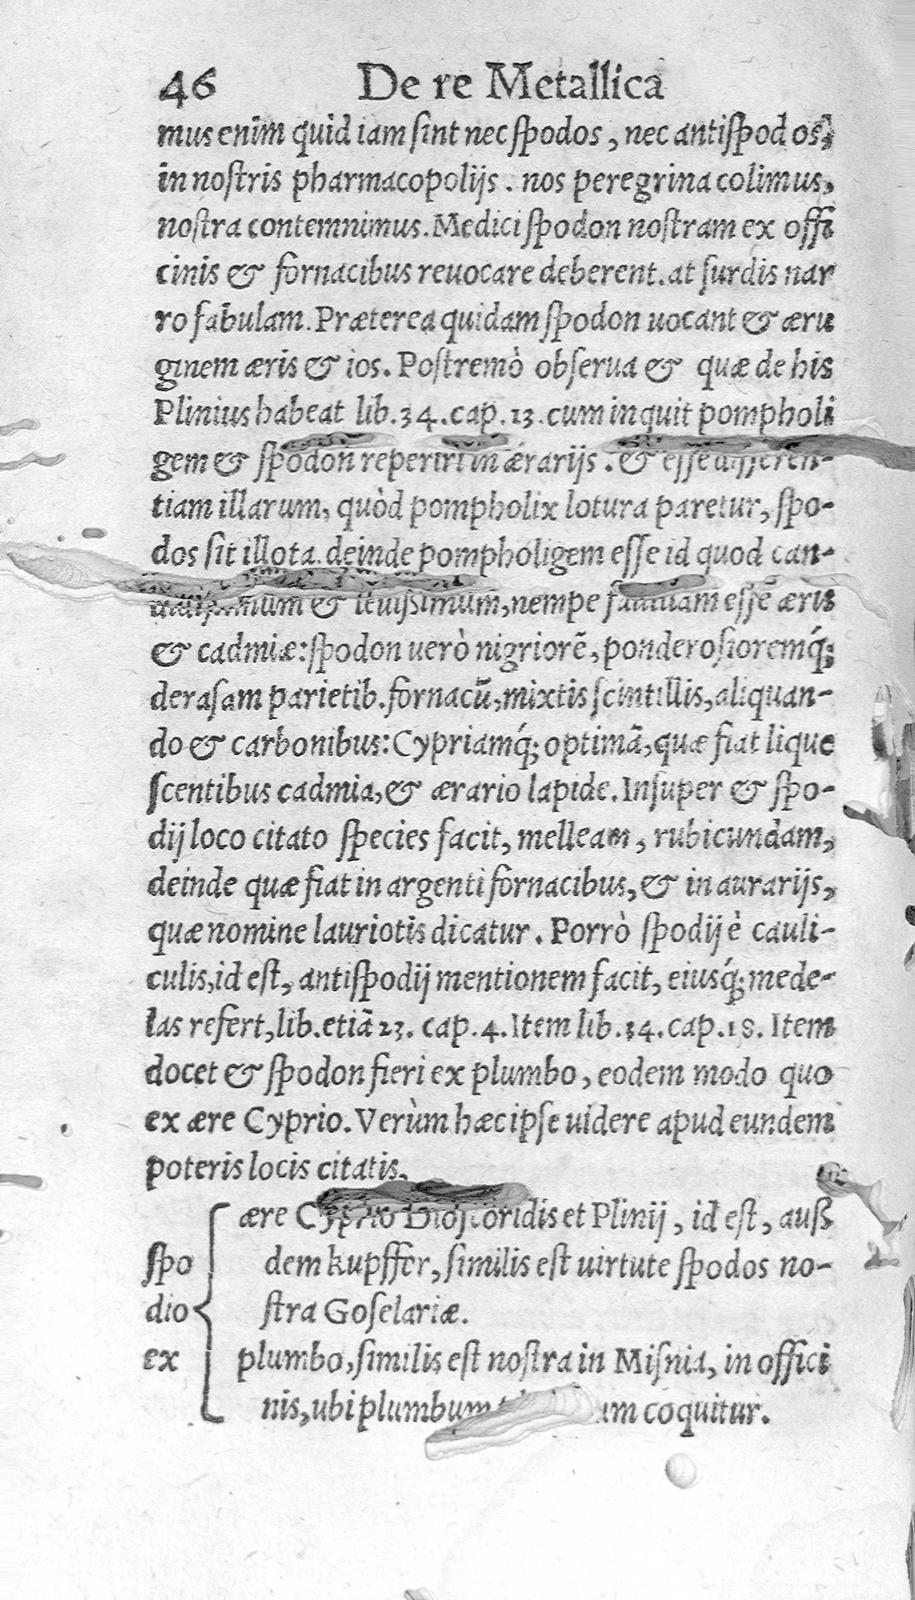 46 De re Metallica
mus enim quid iam sint nec spodos, nec antispodos,
in nostris pharmacopolijs. nos peregrina colimus,
nostra contemnimus. Medici spodon nostram ex offi
cinis & fornacibus reuocare deberent. at surdis nar
ro fabulam. Præterea quidam spodon uocant & æru
ginem æris & ios. Postremò obserua & quæ de his
Plinius habeat lib. 34. cap. 13. cum inquit pompholi
gem & spodon reperiri in ærarijs. & esse differen-
tiam illarum, quòd pompholix lotura paretur, spo-
dos sit illota. deinde pompholigem esse id quod can-
& leuissimum, nempe esse æris
& cadmiæ: spodon uerò nigriorẽ, ponderosioremq́;
derasam parietib. fornacũ, mixtis scintillis, aliquan-
do & carbonibus: Cypriamq́; optimã, quæ fiat lique
scentibus cadmia, & ærario lapide. Insuper & spo-
dij loco citato species facit, melleam, rubicundam,
deinde quæ fiat in argenti fornacibus, & in aurarijs,
quæ nomine lauriotis dicatur. Porrò spodij è cauli-
culis, id est, antispodij mentionem facit, eiusq́; mede-
las refert, lib. etiã 23. cap. 4. Item lib. 34. cap. 18. Item
docet & spodon fieri ex plumbo, eodem modo quo
ex ære Cyprio. Verùm hæc ipse uidere apud eundem
poteris locis citatis.
ære Cyprio Dioscoridis et Plinij, id est, auß
spo dem kupffer, similis est uirtute spodos no-
dio stra Goselariæ.
ex plumbo, similis est nostra in Misnia, in offici
nis, ubi plumbum coquitur.